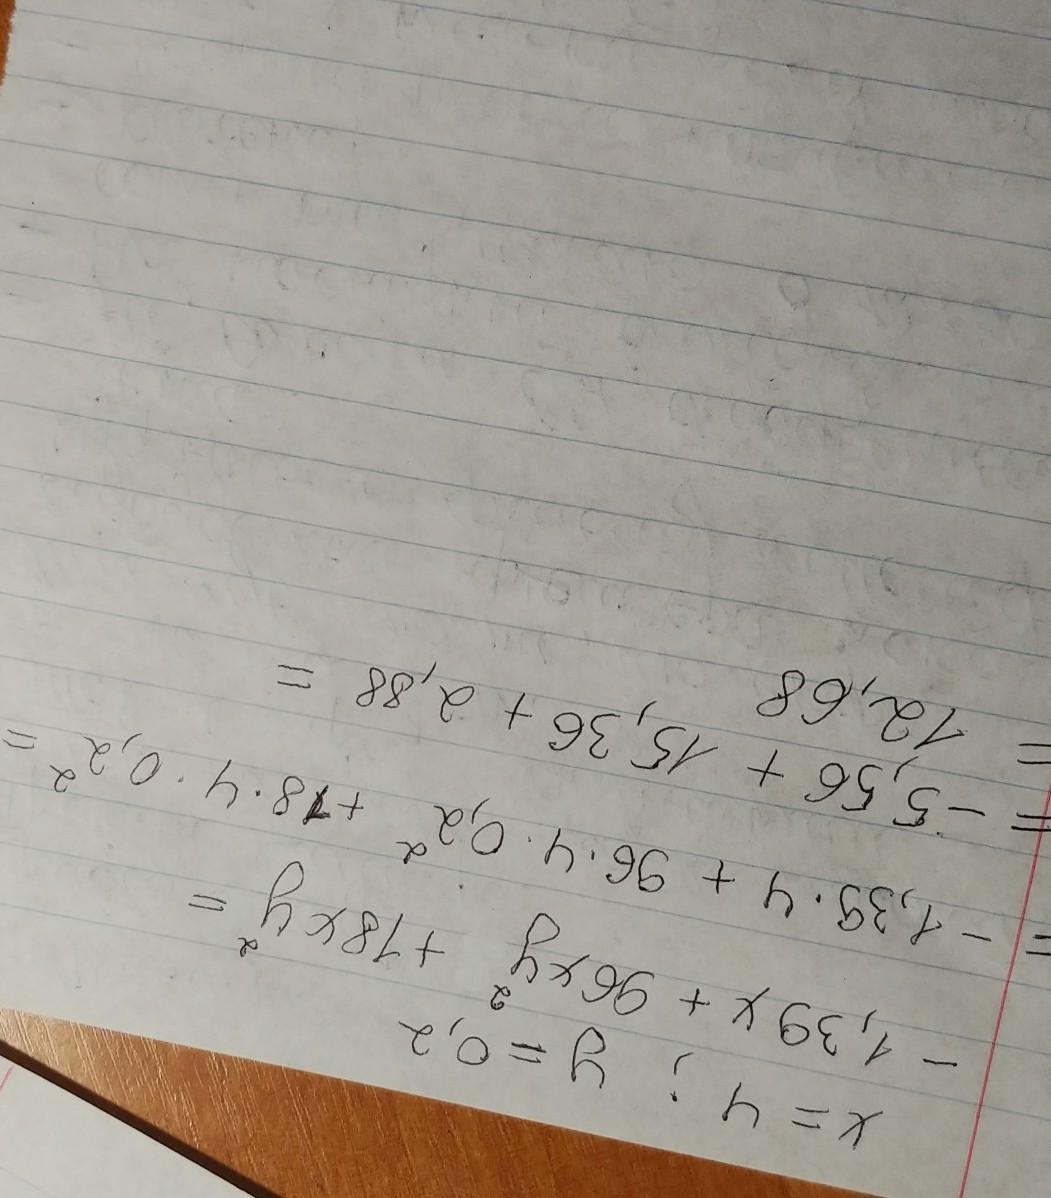 x = 4 ; y = 0,2
- 1,39x + 96xy² + 18xy² =
= - 1,39 · 4 + 96 · 4 · 0,2² + 18 · 4 · 0,2² =
= - 5,56 + 15,36 + 2,88 =
= 12,68